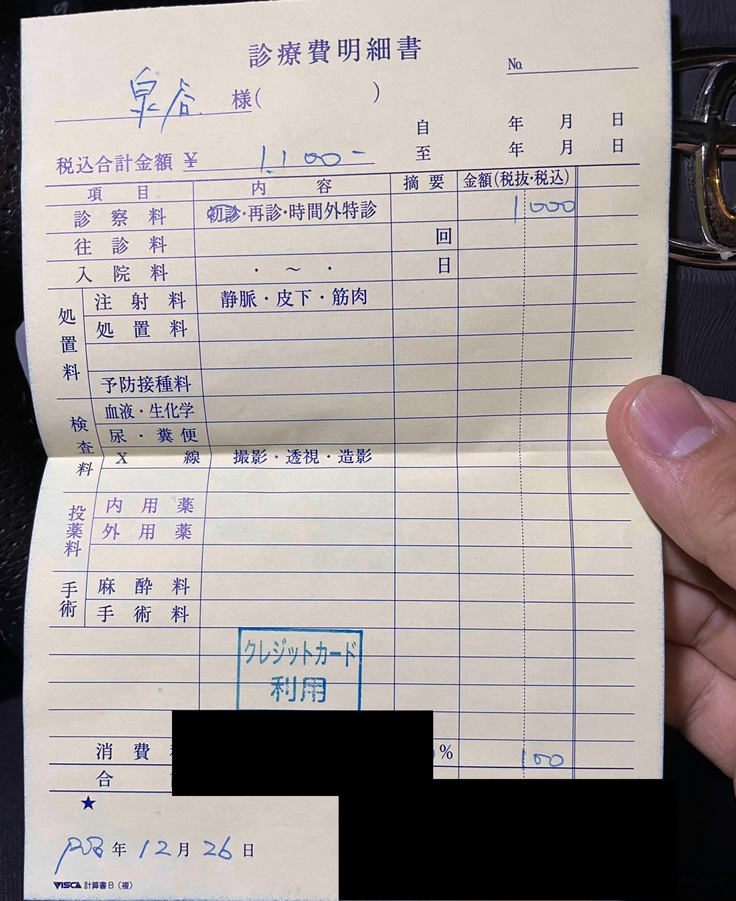 診療費明細書
No.
泉谷 様( )
自 年 月 日
至 年 月 日
税込合計金額 ¥ 1,100-
項目 内容 摘要 金額(税抜・税込)
診察料 初診・再診・時間外特診 1000
往診料 回
入院料 ・ ～ ・ 日
処置料
注射料 静脈・皮下・筋肉
処置料
予防接種料
検査料
血液・生化学
尿・糞便
X線 撮影・透視・造影
投薬料
内用薬
外用薬
手術
麻酔料
手術料
クレジットカード
利用
消費 % 100
合
★
年 12月 26日
VISCA 計算書B(複)